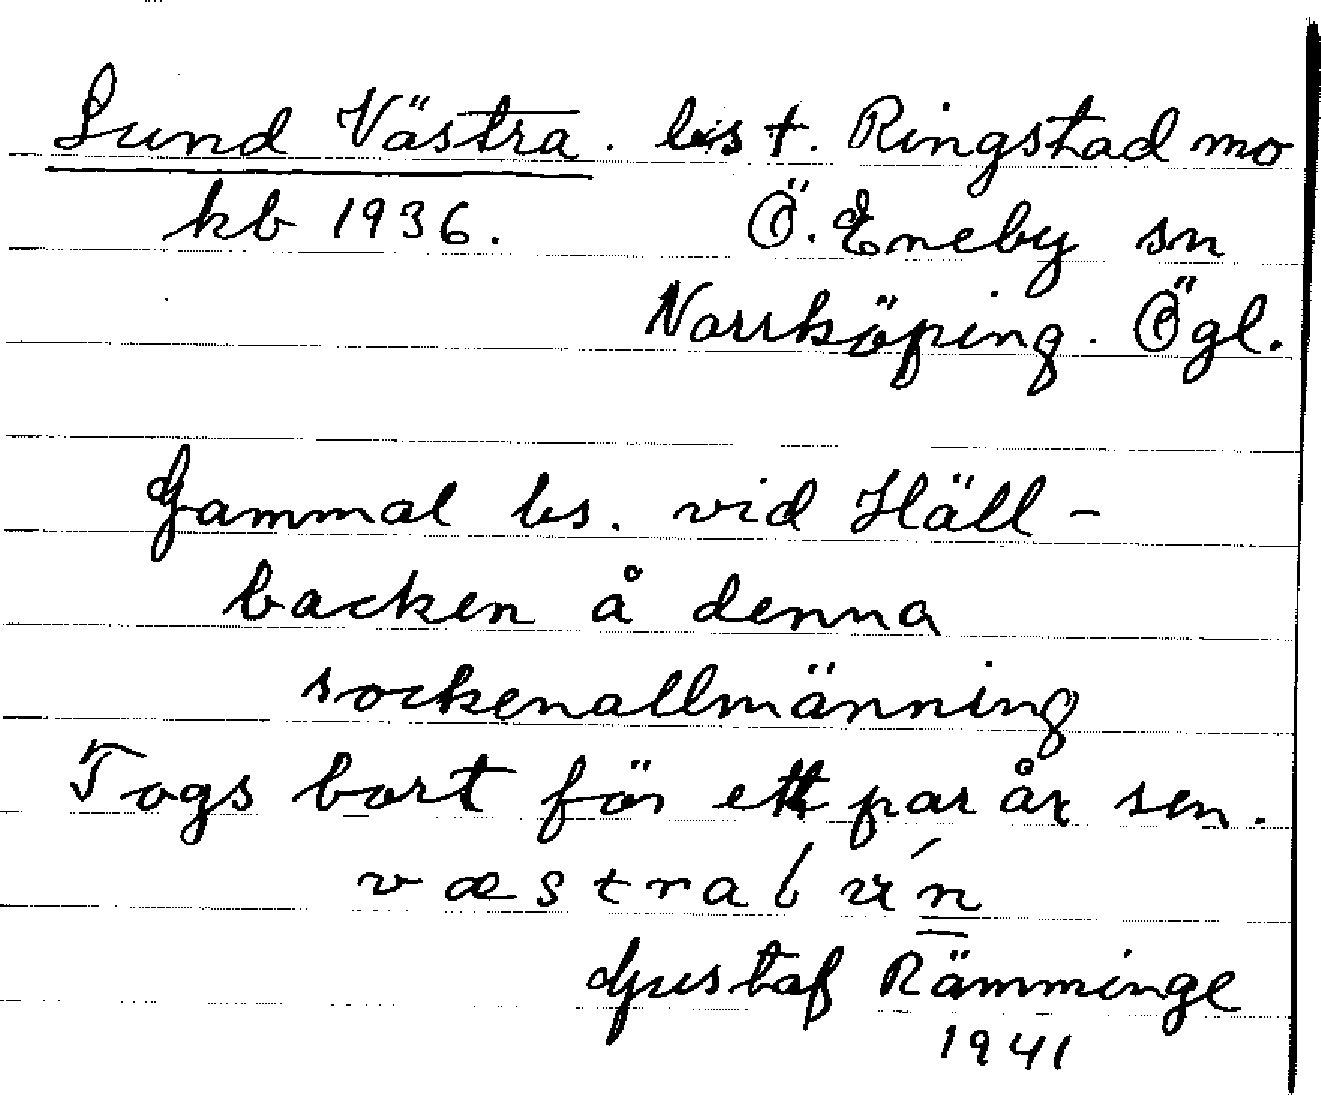 Lund Västra. bs †. Ringstad mo
kb 1936. Ö. Eneby sn
Norrköping. Ögl.
Gammal bs. vid Häll-
backen å denna
sockenallmänning
Togs bort för ett par år sen.
Gustaf Rämminge
1941